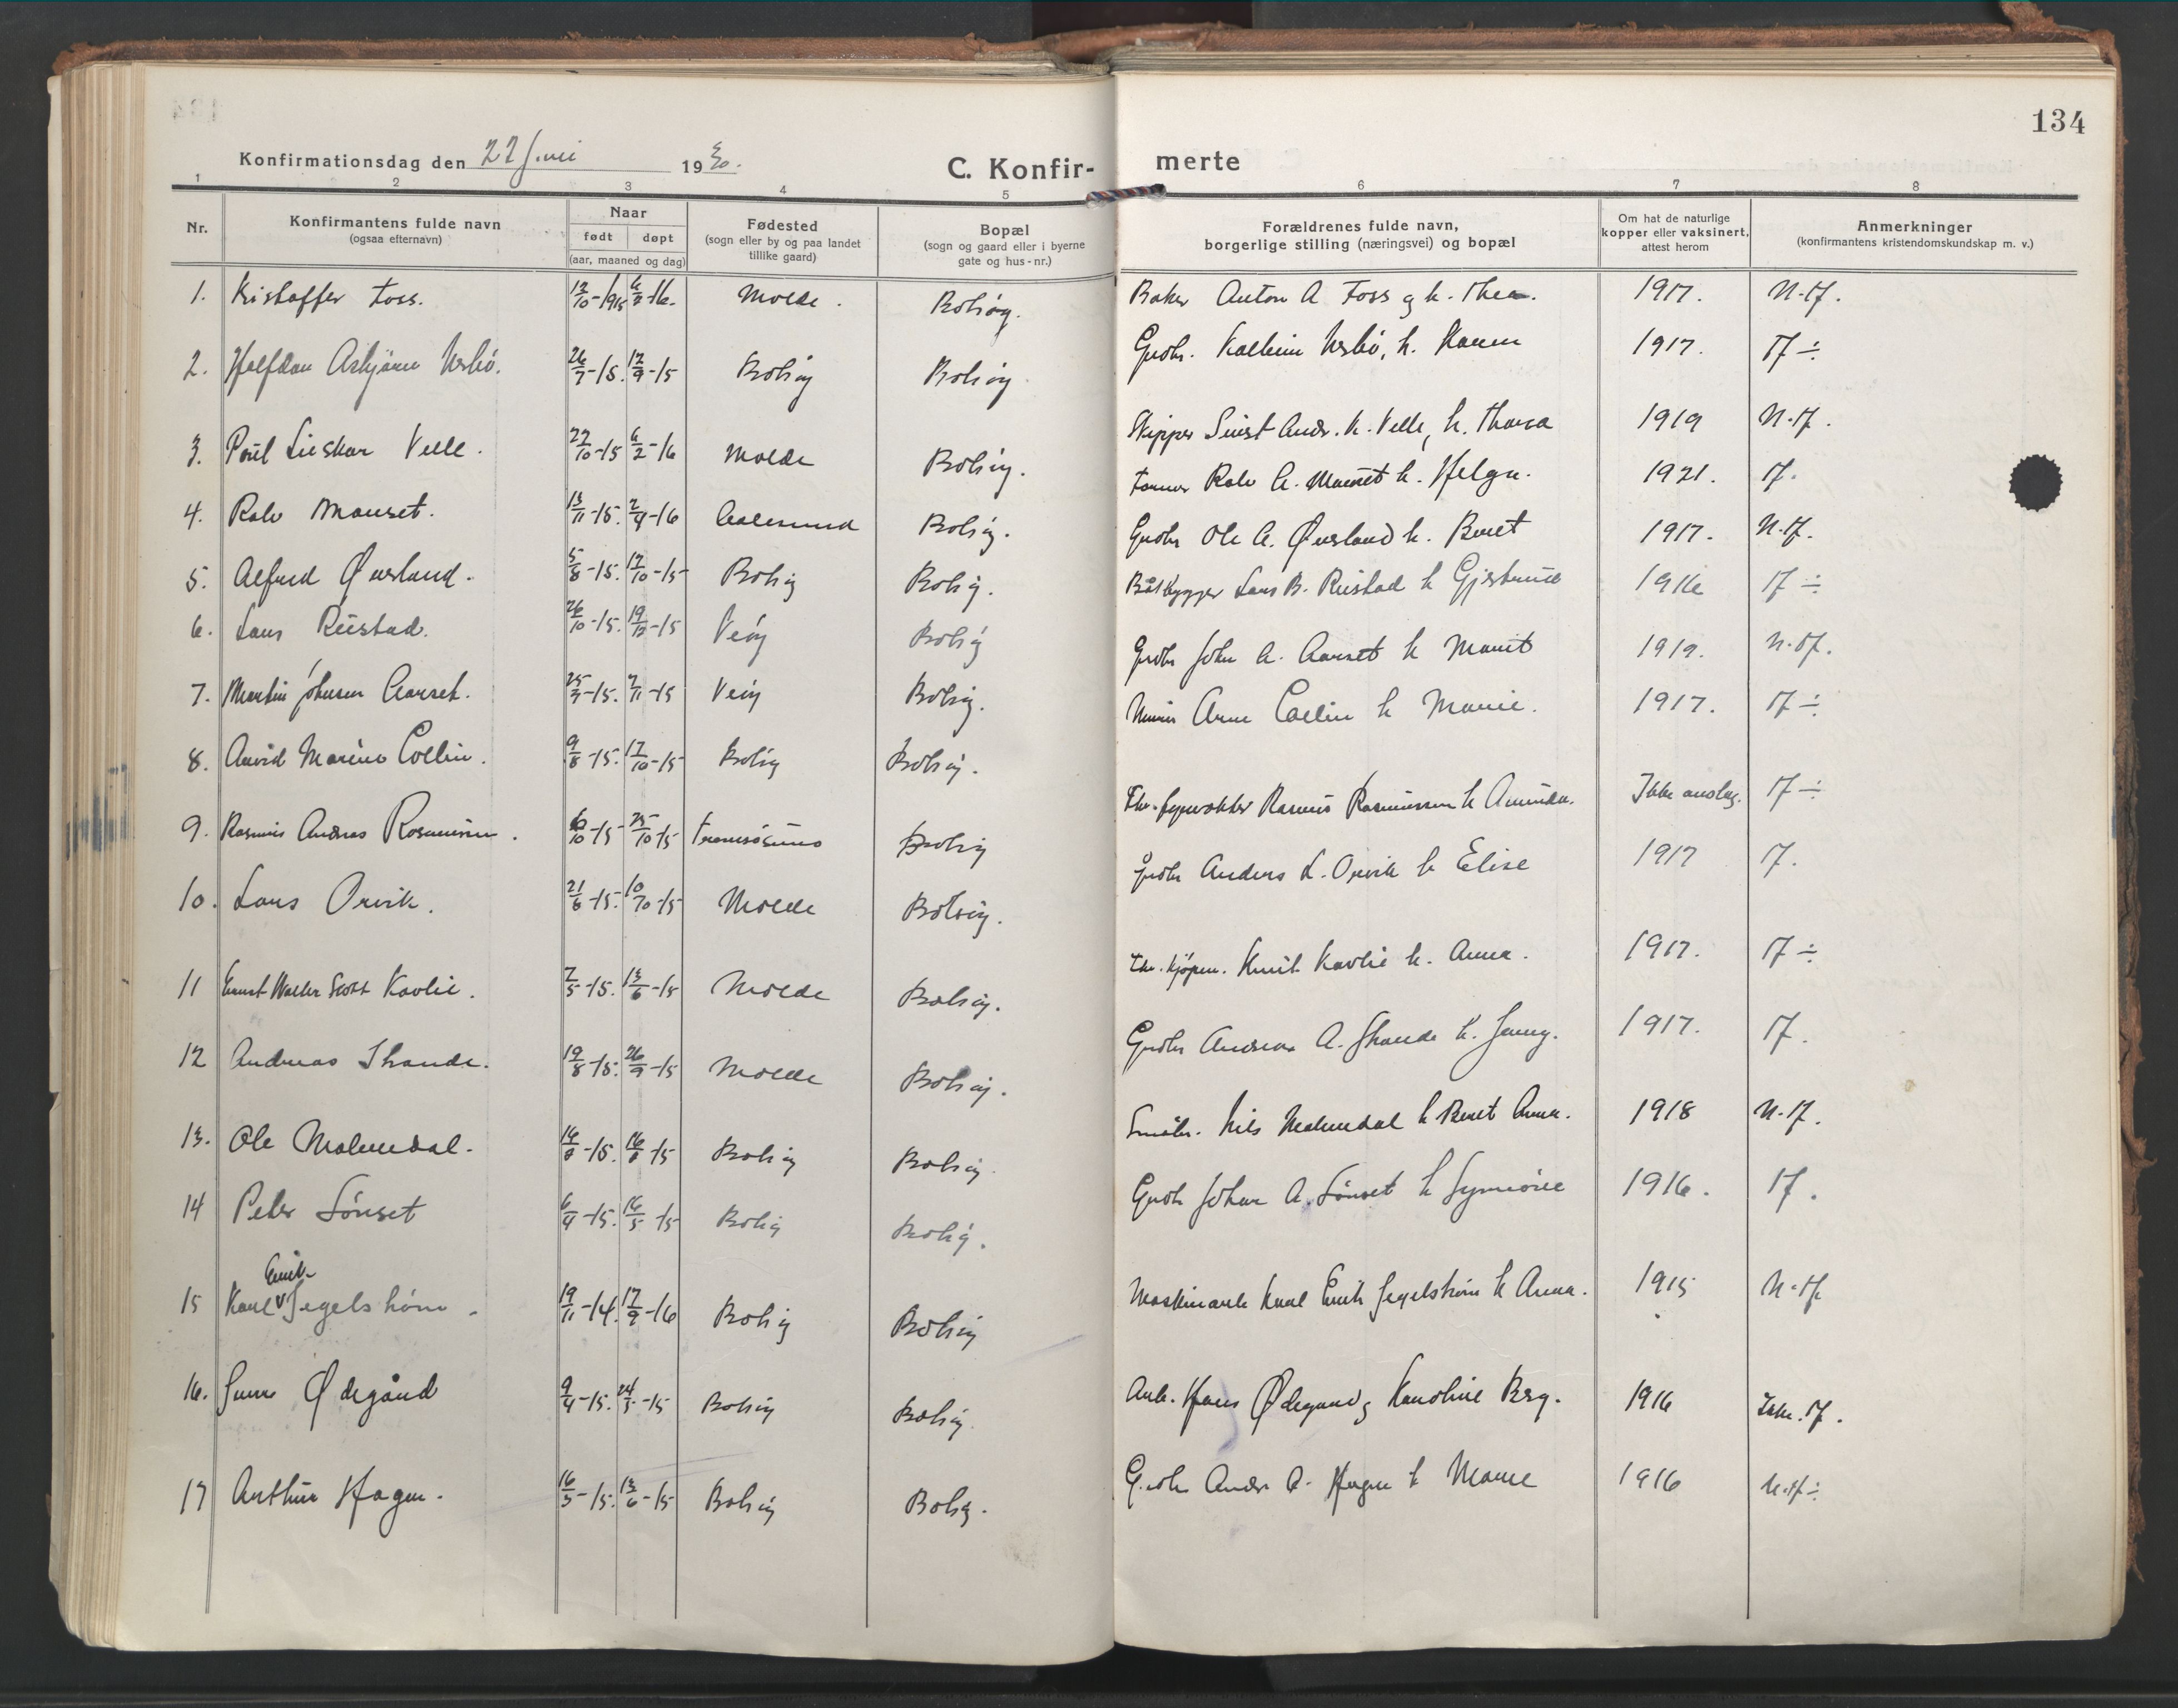 134
Konfirmationsdag den 22 Juni 1930.
C. Konfir- merte
1 2 3 4 5 6 7 8
Nr.
Konfirmantens fulde navn
(ogsaa efternavn)
Naar
født døpt
(aar, maaned og dag)
Fødested
(sogn eller by og paa landet
tillike gaard)
Bopæl
(sogn og gaard eller i byerne
gate og hus-nr.)
Forældrenes fulde navn,
borgerlige stilling (næringsvei) og bopæl
Om hat de naturlige
kopper eller vaksinert,
attest herom
Anmerkninger
(konfirmantens kristendomskundskap m. v.)
1. Kristoffer Foss. Molde. Bolsøy. Baker Anton A Foss og h. Thea. 1917.
2. Halfdan Asbjørn 26/7-15. 12/9-15 Bolsøy Bolsøy. Grdbr. h. Karen 1917.
3. Poul Velle. 27/10-15 6/2-16 Molde Bolsøy. Skipper Andr. K. Velle, h. Thora 1919
4. Rolv Mauset. 13/11-15. 2/4-16 Aalesund Bolsøy. Rolv A. Mauset h. Helga. 1921.
5. Alfred Øverland. 5/8-15. 17/10-15 Bolsøy Bolsøy. Grdbr Ole A. Øverland h. Beret 1917.
6. Lars Riistad. 26/10-15. 19/12-15 Veøy Bolsøy Båtbygger Lars B. Riistad h Gjertrud 1916
7. Martin Johnsen Aarset. 25/7-15. 7/11-15 Veøy Bolsøy. Grdbr John A. Aarset h Marit 1919.
8. Arvid Marino Collin. 9/8-15. 17/10-15 Bolsøy Bolsøy. Murer Arne Collin h Marie. 1917.
9. Rasmus Andreas Rasmussen. 6/10-15 25/10-15 Tromsøsund Bolsøy Fhv. fyrvokter Rasmus Rasmussen h Amunda. Ikke anslag.
10. Lars Orvik. 21/6-15. 10/10-15 Molde Bolsøy. Grdbr Anders L. Orvik h Elise 1917
11 Ernst Walter Scott Kavlie. 2/5-15. 13/6-15 Molde Bolsøy. Fhv. kjøpm. Knut Kavlie h. Anna. 1917.
12 Andreas Strande. 19/8-15. 26/9-15 Molde Bolsøy. Grdbr Andreas A. Strande h. Jenny. 1917.
13. Ole Malmedal. Bolsøy Bolsøy. Småbr. Nils Malmedal h Beret Anna. 1918
14 Peter Sønset 6/4-15. 16/5-15 Bolsøy Bolsøy. Grdbr Johan A. Sønset h Synnøve 1916.
15 Karl Emil Segelstrøm. 19/11-14. 17/9-16 Bolsøy Bolsøy Maskinarb Karl Emil Segelstrøm h Anna. 1915
16. Ødegård 9/4-15. 24/5-15 Bolsøy Bolsøy. Arb. Hans Ødegaard og Karoline Berg. 1916
17 Arthur Hagen. 16/5-15. 13/6-15 Bolsøy Bolsøy. Grdbr Andr A. Hagen h Marie 1916